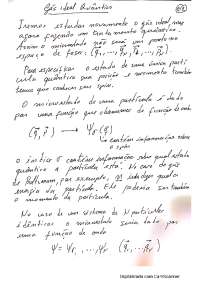 Gás ideal quântico
Iremos estudar novamente o gás ideal, mas
agora fazendo um tratamento quântico.
Assim o microestado não será um ponto no
espaço de fases:
Para especificar o estado de uma única partí-
cula quântica sua posição e momento também
temos que conhecer seu spin.
O microestado de uma partícula é dado
por uma função que chamamos de função de onda
(q⃗, t) → Ψ_r(q⃗)
contém informações sobre
o spin
o índice r contém informações sobre qual estado
quântico a partícula está. No caso do gás
de Boltzmann, por exemplo, r indicaria qual a
energia da partícula. Ele poderia ser também
o momento da partícula.
No caso de um sistema de N partículas
idênticas o microestado seria dado por
uma função de onda
Ψ = Ψ_{r_1, ..., r_N} (q⃗_1, ..., q⃗_N)
Digitalizado com CamScanner